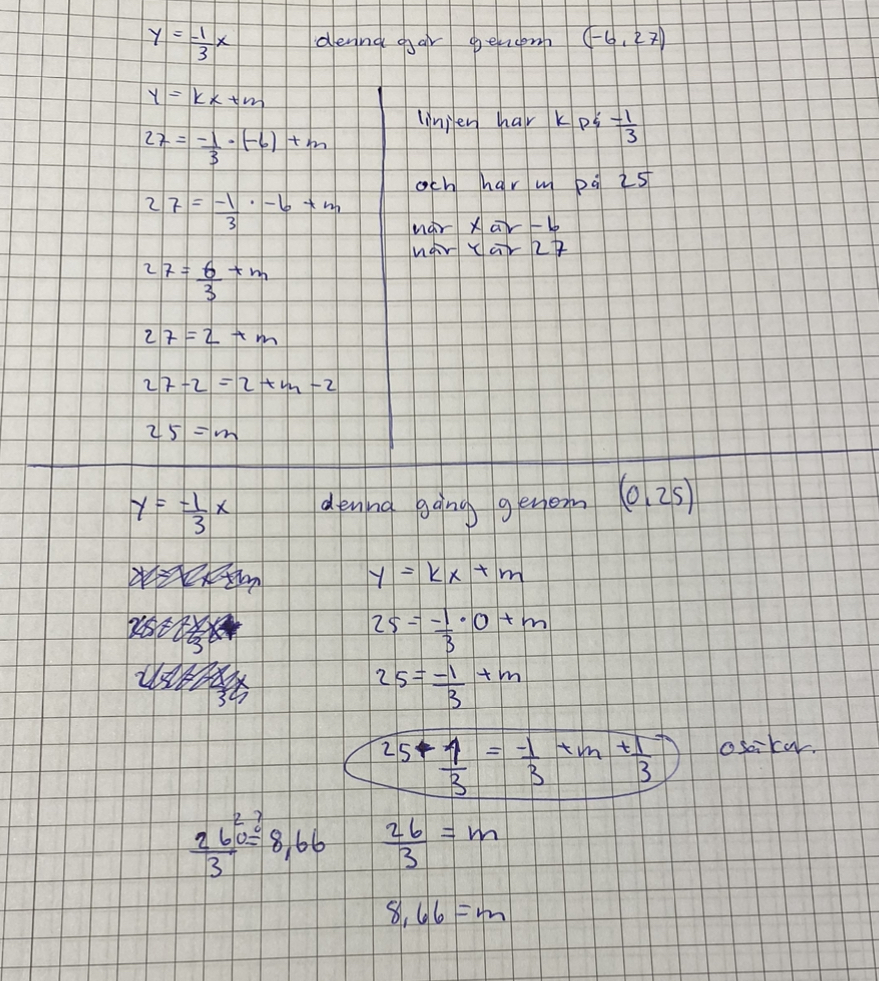 y = -1/3 x denna går genom (-6, 27)
y = kx + m
27 = -1/3 · (-6) + m
27 = -1/3 · -6 + m
27 = 6/3 + m
27 = 2 + m
27 - 2 = 2 + m - 2
25 = m
linjen har k på -1/3
och har m på 25
när x är -6
när y är 27
y = -1/3 x denna gång genom (0, 25)
y = kx + m
25 = -1/3 · 0 + m
25 = -1/3 + m
25 + 1/3 = -1/3 + m + 1/3 osäker.
26/3 = m
260/3 = 8,66
8,66 = m